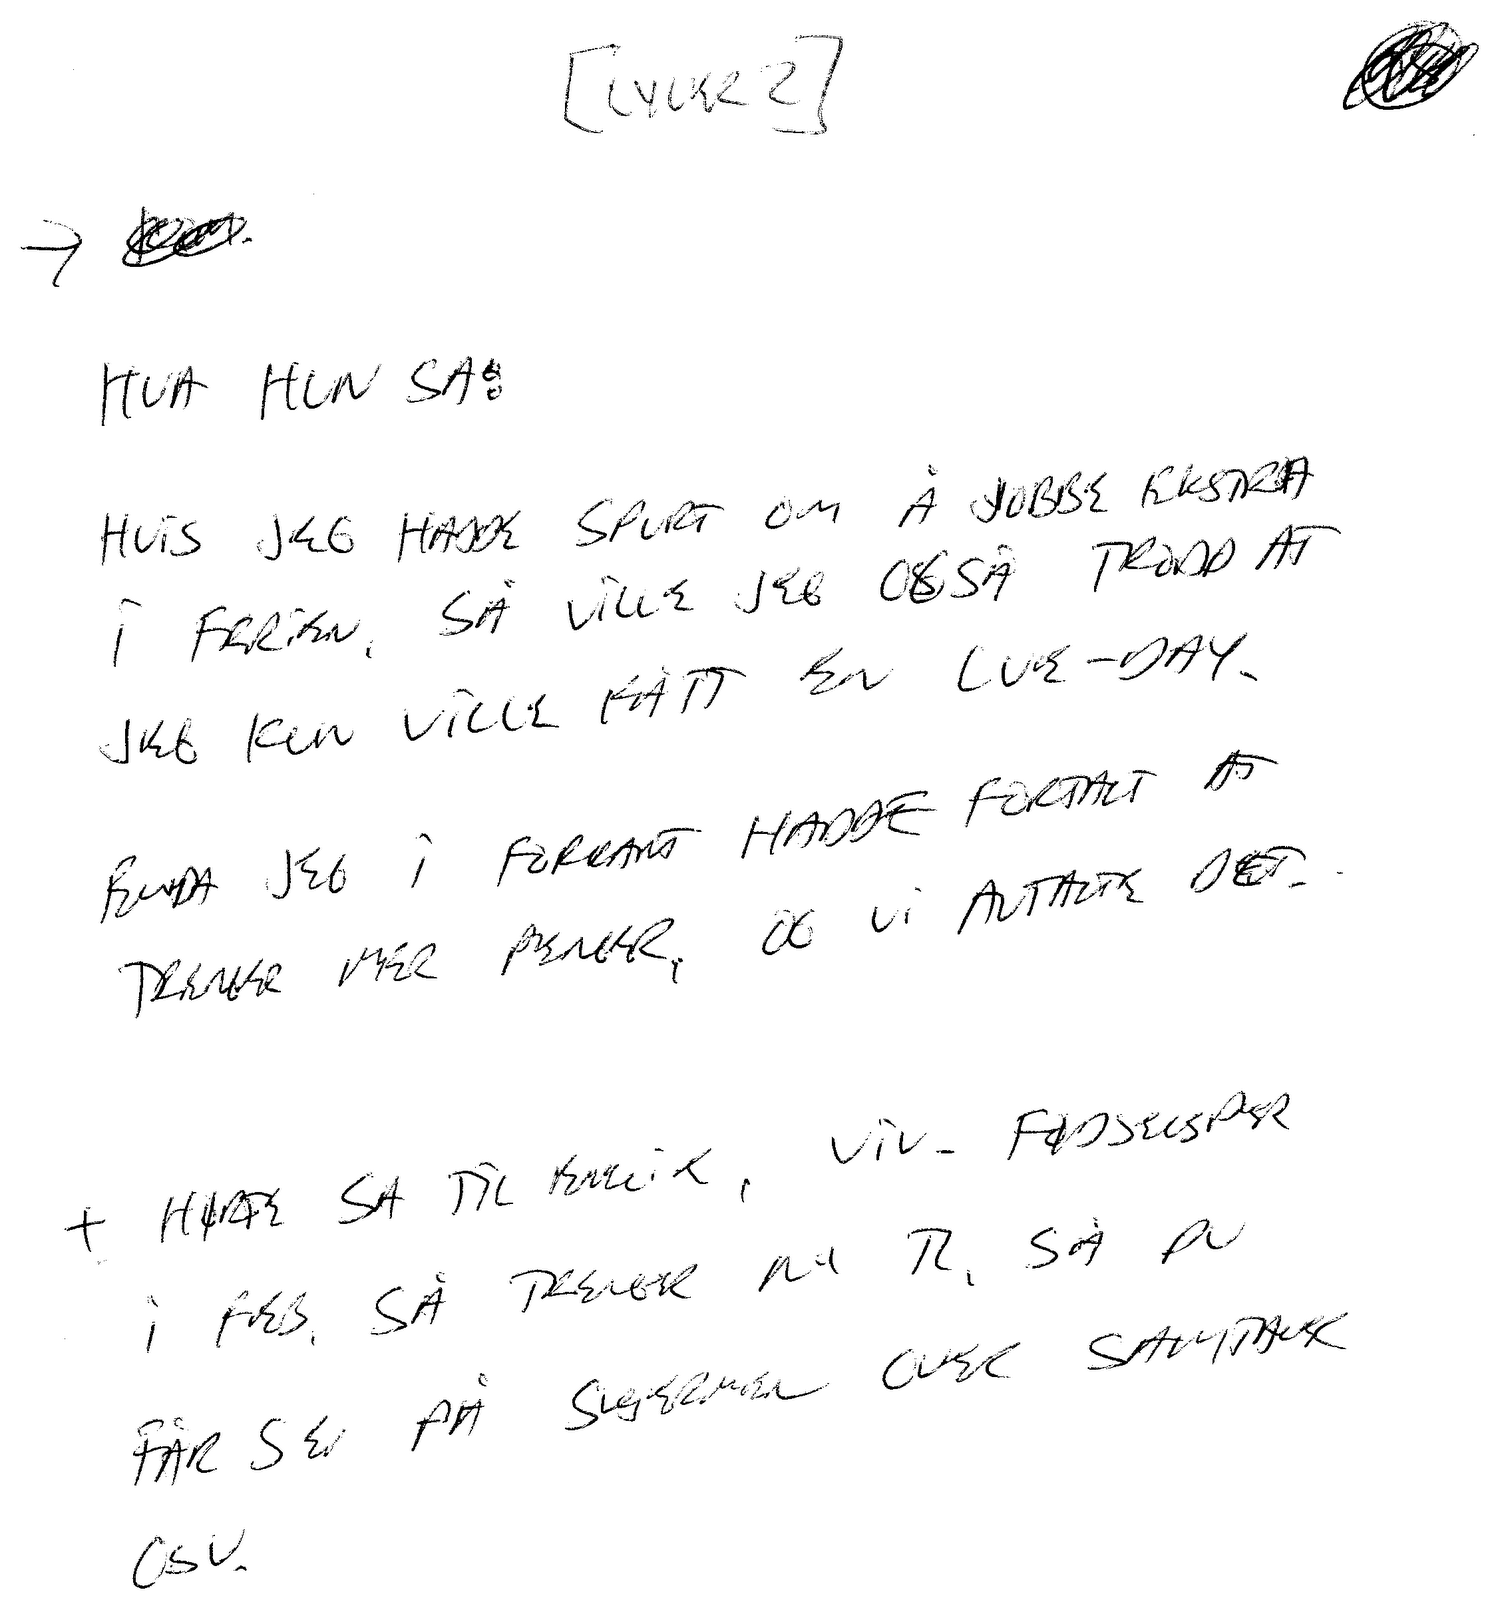 [LYVER 2]
→
HVA HUN SA:
HVIS JEG HADDE SPURT OM Å JOBBE EKSTRA
I FERIEN, SÅ VILLE JEG OGSÅ TRODD AT
JEG KUN VILLE FÅTT EN LUE-DAY.
ENDA JEG I FORKANT HADDE FORTALT AT
TRENGER MER PENGER, OG VI AVTALTE DET.
+ HØRTE SA TIL, VIV- FØDSELSPER
I FEB. SÅ TRENGER, SÅ DU
FÅR SE PÅ OVER SAMTALER
OSV.